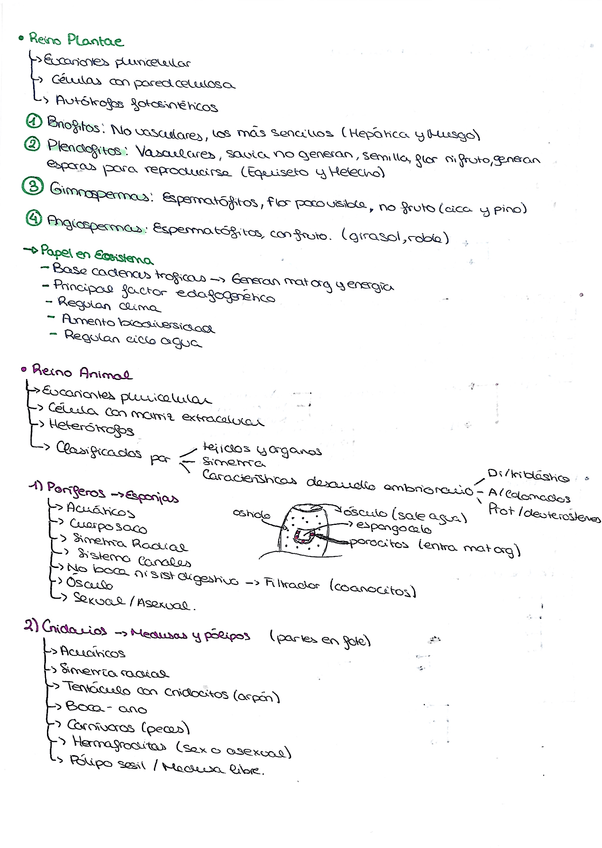 • Reino Plantae
↳ Eucariontes pluricelular
↳ Células con pared celulosa
↳ Autótrofos fotosintéticos
① Briofitos: No vasculares, los más sencillos (Hepática y Musgo)
② Pteridofitos: Vasculares, savia no generan, semilla, flor ni fruto, generan
esporas para reproducirse (Equiseto y Helecho)
③ Gimnospermas: Espermatófitos, flor poco visible, no fruto (cica y pino)
④ Angiospermas: Espermatófitos, con fruto. (girasol, roble)
→ Papel en Ecosistema
- Base cadenas troficas → Generan mat org y energía
- Principal factor edafogenético
- Regulan clima
- Aumento biodiversidad
- Regulan ciclo agua
• Reino Animal
↳ Eucariontes pluricelular
↳ Célula con matriz extracelular
↳ Heterótrofos
↳ Clasificados por
tejidos y organos
Simetría
Características desarrollo embrionario
Di/triblástico
A/celomados
Prot/deuterostomos
1) Poríferos → Esponjas
↳ Acuáticos
↳ Cuerpo saco
↳ Simetría Radial
↳ Sistema canales
↳ No boca ni sist digestivo → Filtrador (coanocitos)
↳ Ósculo
↳ Sexual / Asexual.
ostiolo
ósculo (sale agua)
espongocelo
porocitos (entra mat org)
2) Cnidarios → Medusas y pólipos (partes en foto)
↳ Acuáticos
↳ Simetría radial
↳ Tentáculo con cnidocitos (arpón)
↳ Boca - ano
↳ Carnívoros (peces)
↳ Hermafroditas (sex o asexual)
↳ Pólipo sesil / Medusa libre.